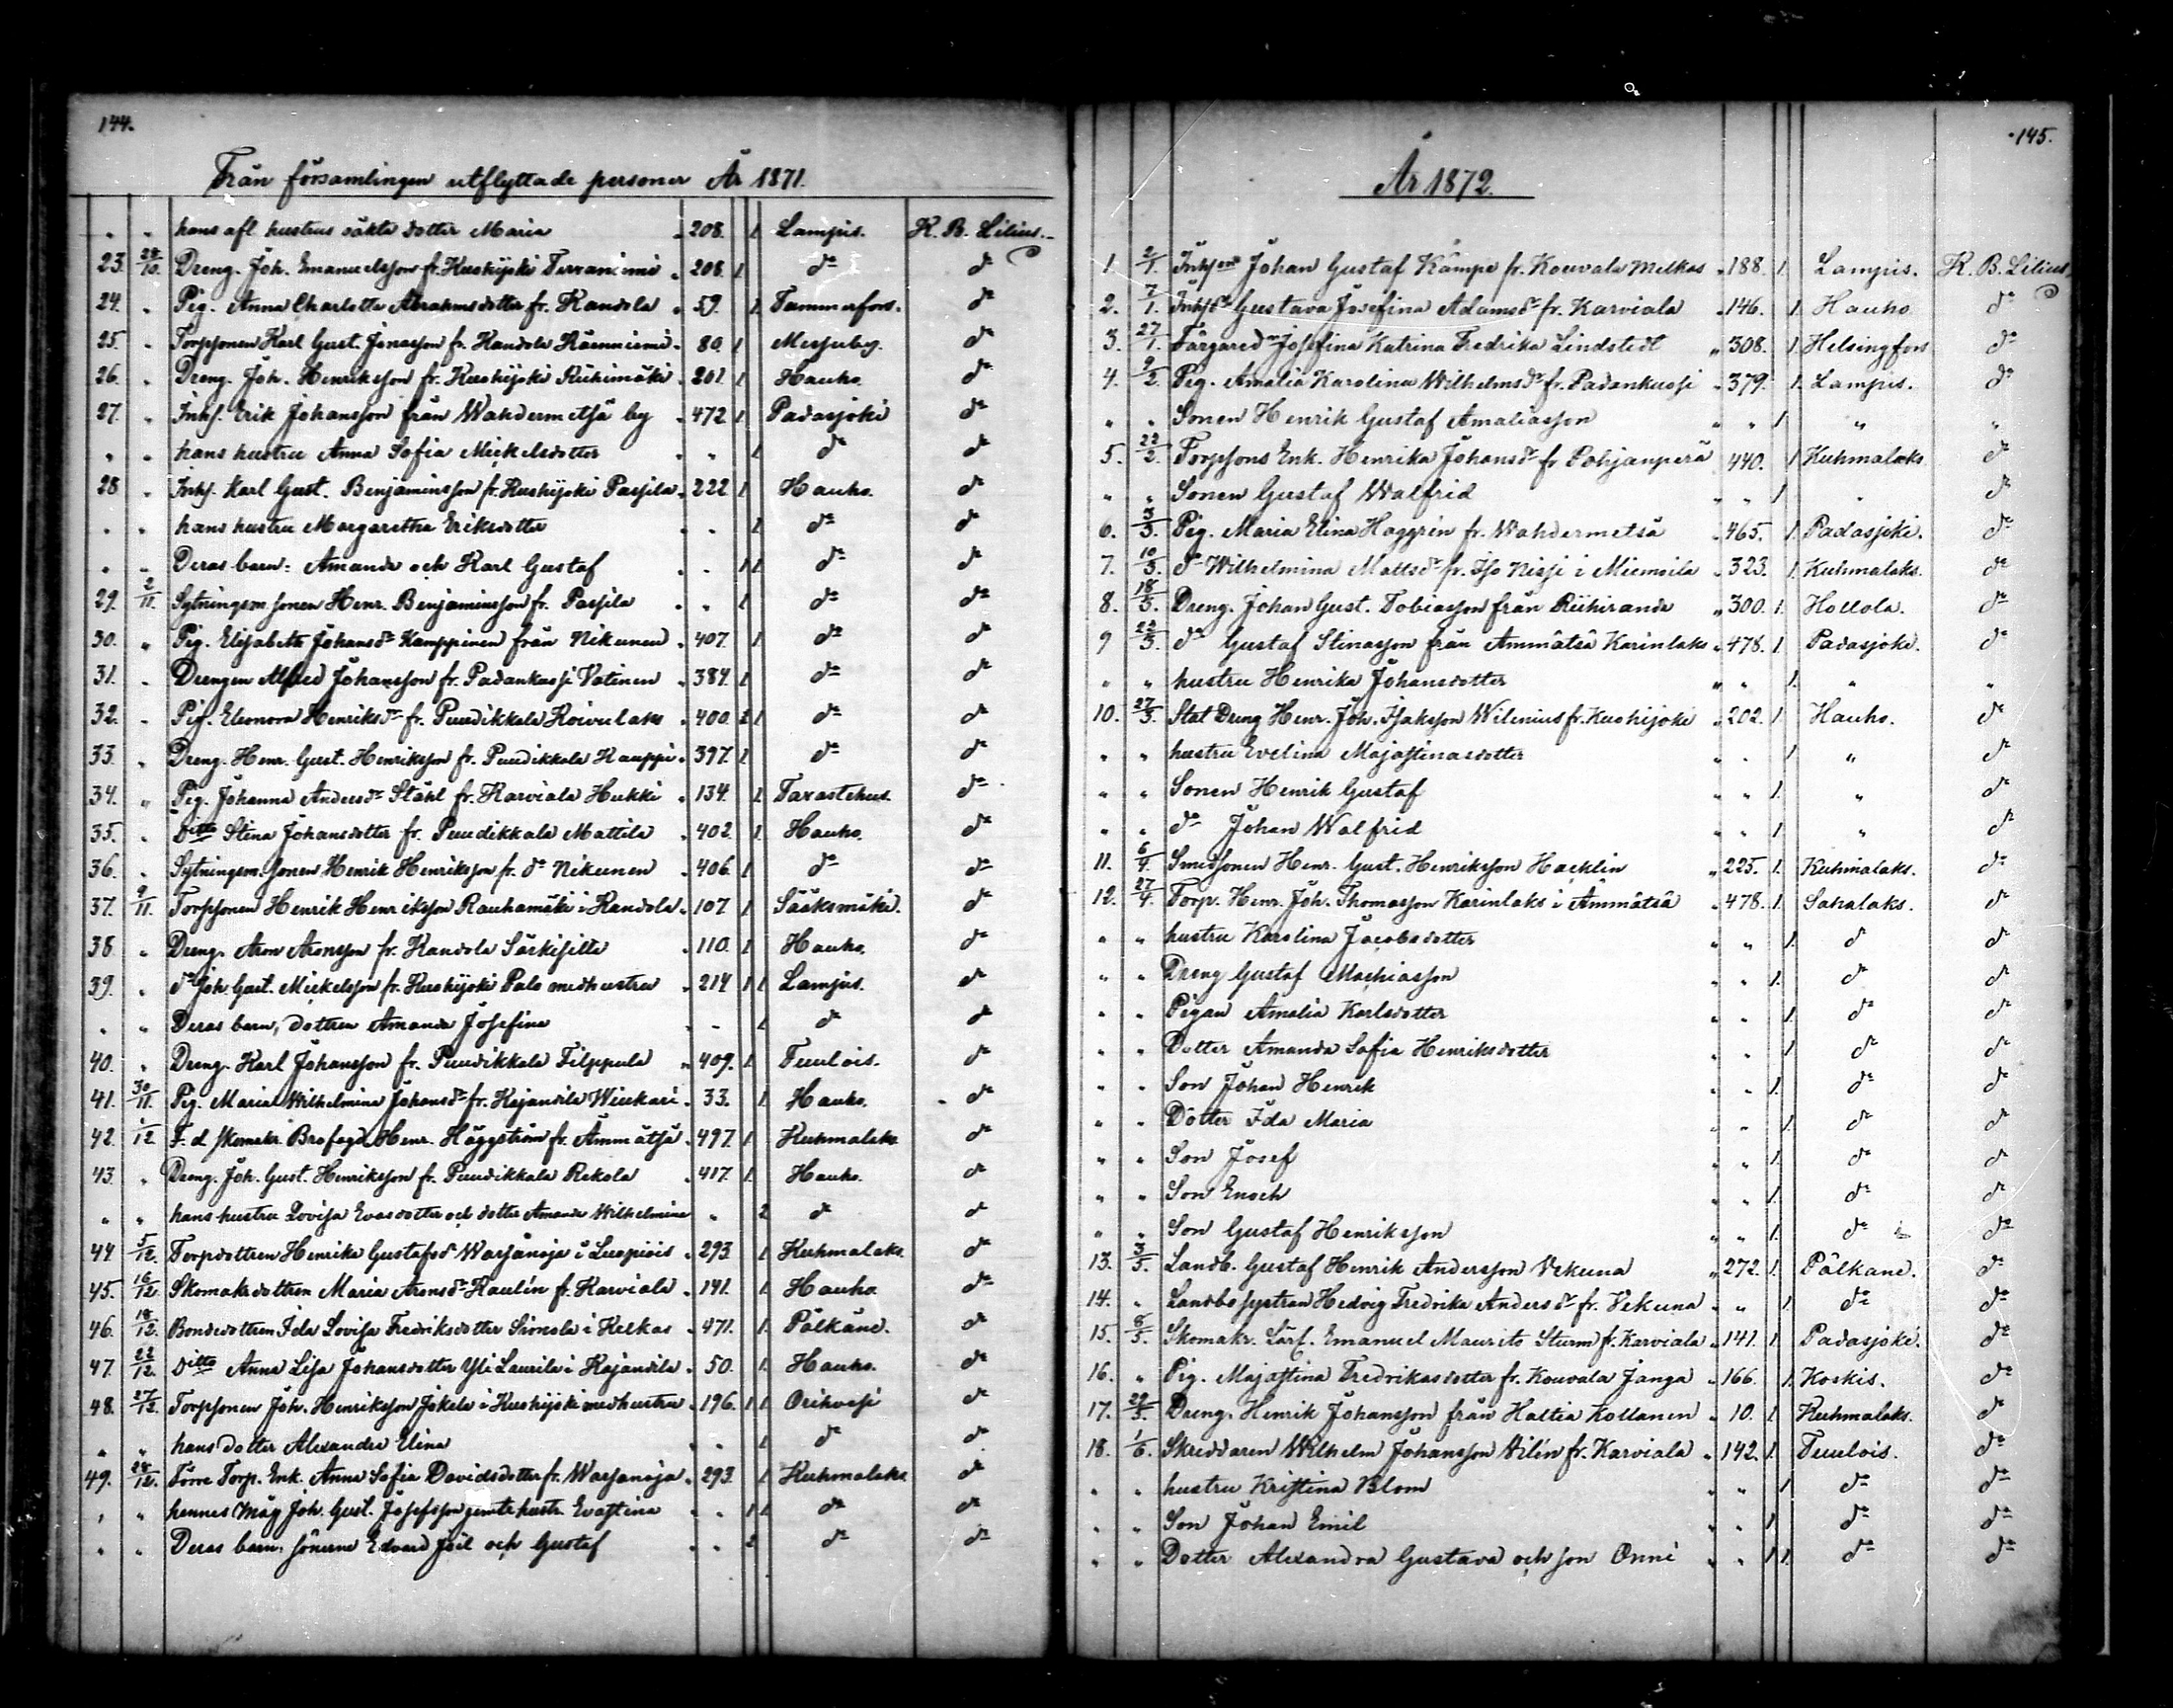 144.
Från församlingen utflyttade personer År 1871.
" " hans afl. hustrus oäkta dotter Maria " 208. 1 Lampis. K. B. Lilius.
23. 28/10. Dreng. Joh. Emanuelsson fr. Kuohijoki " 208. 1 do do
24. " Pig. Anna Charlotta Abrahmsdotter fr. Kandola " 59. 1 Tammerfors. do
25. " Torpsonen Karl Gust. Jonasson fr. Kandola " 80. 1 Messuby. do
26. " Dreng. Joh. Henriksson fr. Kuohijoki Riihimäki " 201. 1 Hauho. do
27. " Inhs. Erik Johansson från Wahdermetsä by " 472. 1 Padasjoki do
" " hans hustru Anna Sofia Mickelsdotter " " 1 do do
28 " Inhs. Karl Gust. Benjaminsson fr. Kuohijoki Passila " 222 1 Hauho. do
" " hans hustru Margaretha Eriksdotter " " 1 do do
" " Deras barn: Amanda och Karl Gustaf " " 1 1 do do
29. 2/11. Sytningsm. sonen Henr. Benjaminsson fr. Passila " " 1 do do
30. " Pig. Elisabeth Johansdr Kamppinen från Nikunen " 407. 1 do do
31. " Drengen Alfred Johansson fr. Padankossi Vatinen " 384. 1 do do
32. " Pig. Eleonora Henriksdr fr. Puudikkala Koivulaks " 400. 1 do do
33. " Dreng. Henr. Gust. Henriksson fr. Puudikkala Kauppi " 397. 1 do do
34. " Pig. Johanna Andersdr Ståhl fr. Karviala Hukki " 134. 1 Tavastehus. do
35. " Ditto Stina Johansdotter fr. Puudikkala Mattila " 402. 1 Hauho. do
36. " Sytningsm. sonen Henrik Henriksson fr. do Nikunen " 406. 1 do do
37. 9/11. Torpsonen Henrik Henriksson Rauhamäki i Kandola " 107 1 Sääksmäki. do
38. " Dreng. Aron Aronsson fr. Kandola Särkisilta " 110. 1 Hauho. do
39. " do Joh. Gust. Mickelsson fr. Kuohijoki Palo med hustru " 214 1 1 Lampis. do
" " Deras barn, dottren Amanda Josefina " " 1 do do
40. " Dreng. Karl Johansson fr. Puudikkala Filppula " 409. 1 Tuulois. do
41. 30/11. Pig. Maria Wilhelmina Johansdr fr. Kajandila Wiukari " 33. 1 Hauho. do
42. 1/12 F. d. skomakr. Brofogd. Henr. Häggström fr. Ämmätsä " 497. 1 Kuhmalaks do
43. " Dreng. Joh. Gust. Henriksson fr. Puudikkala Rekola " 417. 1 Hauho. do
" " hans hustru Lovisa Evasdotter och dotter Amanda Wilhelmina " 2 do do
44 5/12. Torpdottren Henrika Gustafsdr Warsanoja i Luopiois " 293 1 Kuhmalaks. do
45. 16/12. Skomakr dottren Maria Aronsdr Raulin fr. Karviala " 141. 1 Hauho do
46. 18/12. Bondedottren Ida Lovisa Fredriksdotter Simola i Kelkas " 471. 1 Pälkäne. do
47. 22/12. Ditto Anna Lisa Johansdotter Yli Laurila i Kajandila " 50. 1 Hauho. do
48. 27/12. Torpsonen Joh. Henriksson Jokela i Kuohijoki med hustru " 196. 1 1 Orihvesi do
" " hans dotter Alexandra Elina " " 1 do do
49. 28/12. Förre Torp. Enk. Anna Sofia Davidsdotter fr. Warsanoja " 293. 1 Kuhmalaks do
" " hennes Måg Joh. Gust. Josefsson jemte hustr. Evastina " " 1 1 do do
" " Deras barn: sönerne Edvard Joil och Gustaf " " 2 do do
145.
År 1872.
1 2/1. Johan Gustaf Kämpe fr. Kouvala Melkas " 188. 1. Lampis. K. B. Lilius
2. 7/1. Gustava Josefina Adamsdr fr. Karviala " 146. 1. Hauho. do
3. 27/1. Färgaredr Josefina Katrina Fredrika Lindstedt " 308. 1. Helsingfors do
4. 9/2. Pig. Amalia Karolina Wilhelmsdr fr. Padankossi " 379. 1. Lampis. do
" " Sonen Henrik Gustaf Amaliasson " " 1 " "
5. 22/2. Torpsons Enk. Henrika Johansdr fr Pohjanperä 440. 1 Kuhmalaks do
" " Sonen Gustaf Walfrid " " 1 " do
6. 3/3. Pig. Maria Elina Haggrén fr. Wahdermetsä " 465. 1. Padasjoki. do
7. 10/3. do Wilhelmina Mattsdr fr. Iso Nissi i Miemoila " 323. 1. Kuhmalaks. do
8. 18/3. Dreng. Johan Gust. Tobiasson från Riihiranda " 300. 1. Hollola. do
9 22/3. do Gustaf Stinasson från Ämmätsä Karinlaks " 478. 1. Padasjoki. do
" " hustru Henrika Johansdotter " " 1. " "
10. 27/3. Stat Dreng Henr. Joh. Isaksson Wilenius fr. Kuohijoki " 202. 1. Hauho. do
" " hustru Evelina Majastinasdotter " " 1 " do
" " Sonen Henrik Gustaf " " 1. " do
" " do Johan Walfrid " " 1. " do
11. 6/4. Smedsonen Henr. Gust. Henriksson Hacklin " 225. 1. Kuhmalaks. do
12. 27/4. Torp. Henr. Joh. Thomasson Karinlaks i Ämmätsä " 478. 1. Sahalaks. do
" " hustru Karolina Jacobsdotter " " 1. do do
" " Dreng Gustaf Mathiasson " " 1. do do
" " Pigan Amalia Karlsdotter " " 1. do do
" " Dotter Amanda Sofia Henriksdotter " " 1 do do
" " Son Johan Henrik " " 1. do do
" " Dotter Ida Maria " " 1. do do
" " Son Josef " " 1. do do
" " Son Enoch " " 1. do do
" " Son Gustaf Henriksson " " 1. do do
13. 3/5. Landb. Gustaf Henrik Andersson Vekuna " 272. 1. Pälkäne. do
14. " Landbo systran Hedvig Fredrika Andersdr fr. Vekuna " " 1. do do
15. 8/5. Skomakr. Lärl. Emanuel Maurits Sturm fr. Karviala " 141. 1. Padasjoki. do
16. " Pig. Majastina Fredrikasdotter fr. Kouvala Janga " 166. 1. Koskis. do
17. 29/5. Dreng. Henrik Johansson från Haltia Kollanen " 10. 1. Kuhmalaks. do
18. 1/6. Skreddaren Wilhelm Johansson Hilén fr. Karviala " 142. 1. Tuulois. do
" " hustru Kristina Blom " " 1 do do
" " Son Johan Emil " " 1 do do
" " Dotter Alexandra Gustava och son Onni " " 1 1. do do